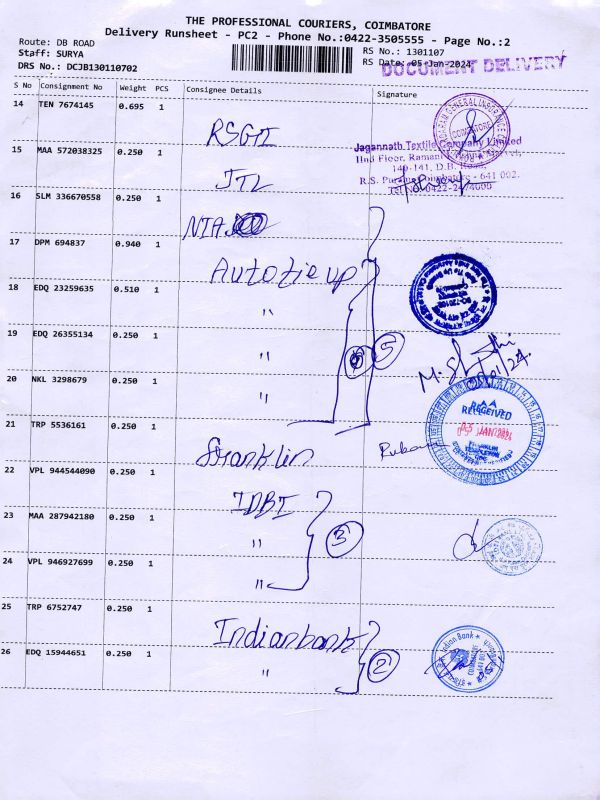 THE PROFESSIONAL COURIERS, COIMBATORE
Delivery Runsheet - PC2 - Phone No.:0422-3505555 - Page No.:2
Route: DB ROAD
RS No.: 1301107
Staff: SURYA
RS Date: 05-Jan-2024
DRS No.: DCJB130110702
DOCUMENT DELIVERY
S No Consignment No Weight PCS Consignee Details Signature
14 TEN 7674145 0.695 1 RSGI
15 MAA 572038325 0.250 1 JTL
Jagannath Textile Company Limited
IInd Floor, Ramani
140-141, D.B. Road,
R.S. Puram, Coimbatore - 641 002.
16 SLM 336670558 0.250 1 NIA
17 DPM 694837 0.940 1 Autotieup
18 EDQ 23259635 0.510 1 "
19 EDQ 26355134 0.250 1 " 5
20 NKL 3298679 0.250 1 "
21 TRP 5536161 0.250 1 Franklin
RECEIVED
05 JAN 2024
22 VPL 944544090 0.250 1 IDBI
23 MAA 287942180 0.250 1 " 3
24 VPL 946927699 0.250 1 "
25 TRP 6752747 0.250 1 Indianbank
26 EDQ 15944651 0.250 1 " 2
Indian Bank